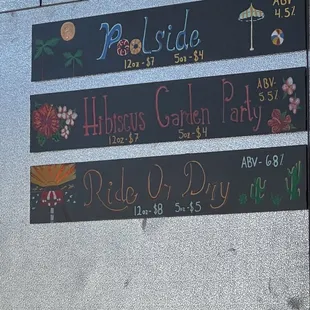 Poolside
ABV
4.5%
12oz - $7 5oz - $4
Hibiscus Garden Party
ABV-
5.5
12oz - $7 5oz - $4
ABV- 6.8%
Ride Or Dry
12oz - $8 5oz - $5